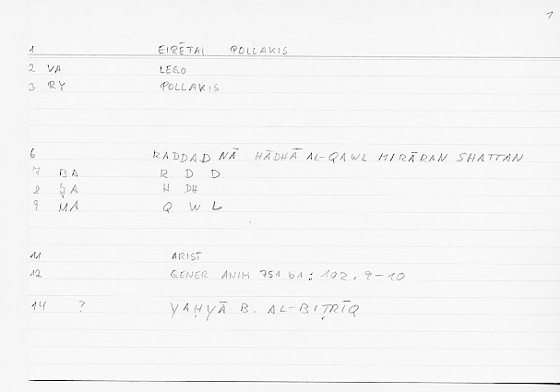 1
1 EIRĒTAI POLLAKIS
2 VA LEGO
3 RY POLLAKIS
6 RADDAD NĀ HĀDHĀ AL-QAWL MIRĀRAN SHATTAN
7 BA R D D
8 JA H DH
9 MA Q W L
11 ARIST
12 GENER ANIM 751 b1 : 102, 9-10
14 ? YAḤYĀ B. AL-BIṬRĪQ